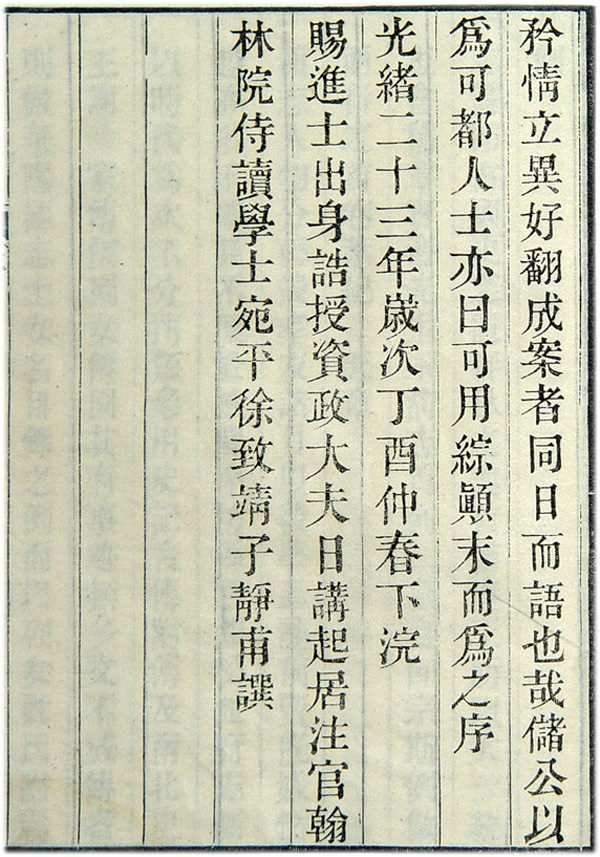 矜情立異好翻成案者同日而語也哉儲公以
爲可都人士亦曰可用綜顚末而爲之序
光緒二十三年歲次丁酉仲春下浣
賜進士出身誥授資政大夫日講起居注官翰
林院侍讀學士宛平徐致靖子靜甫譔